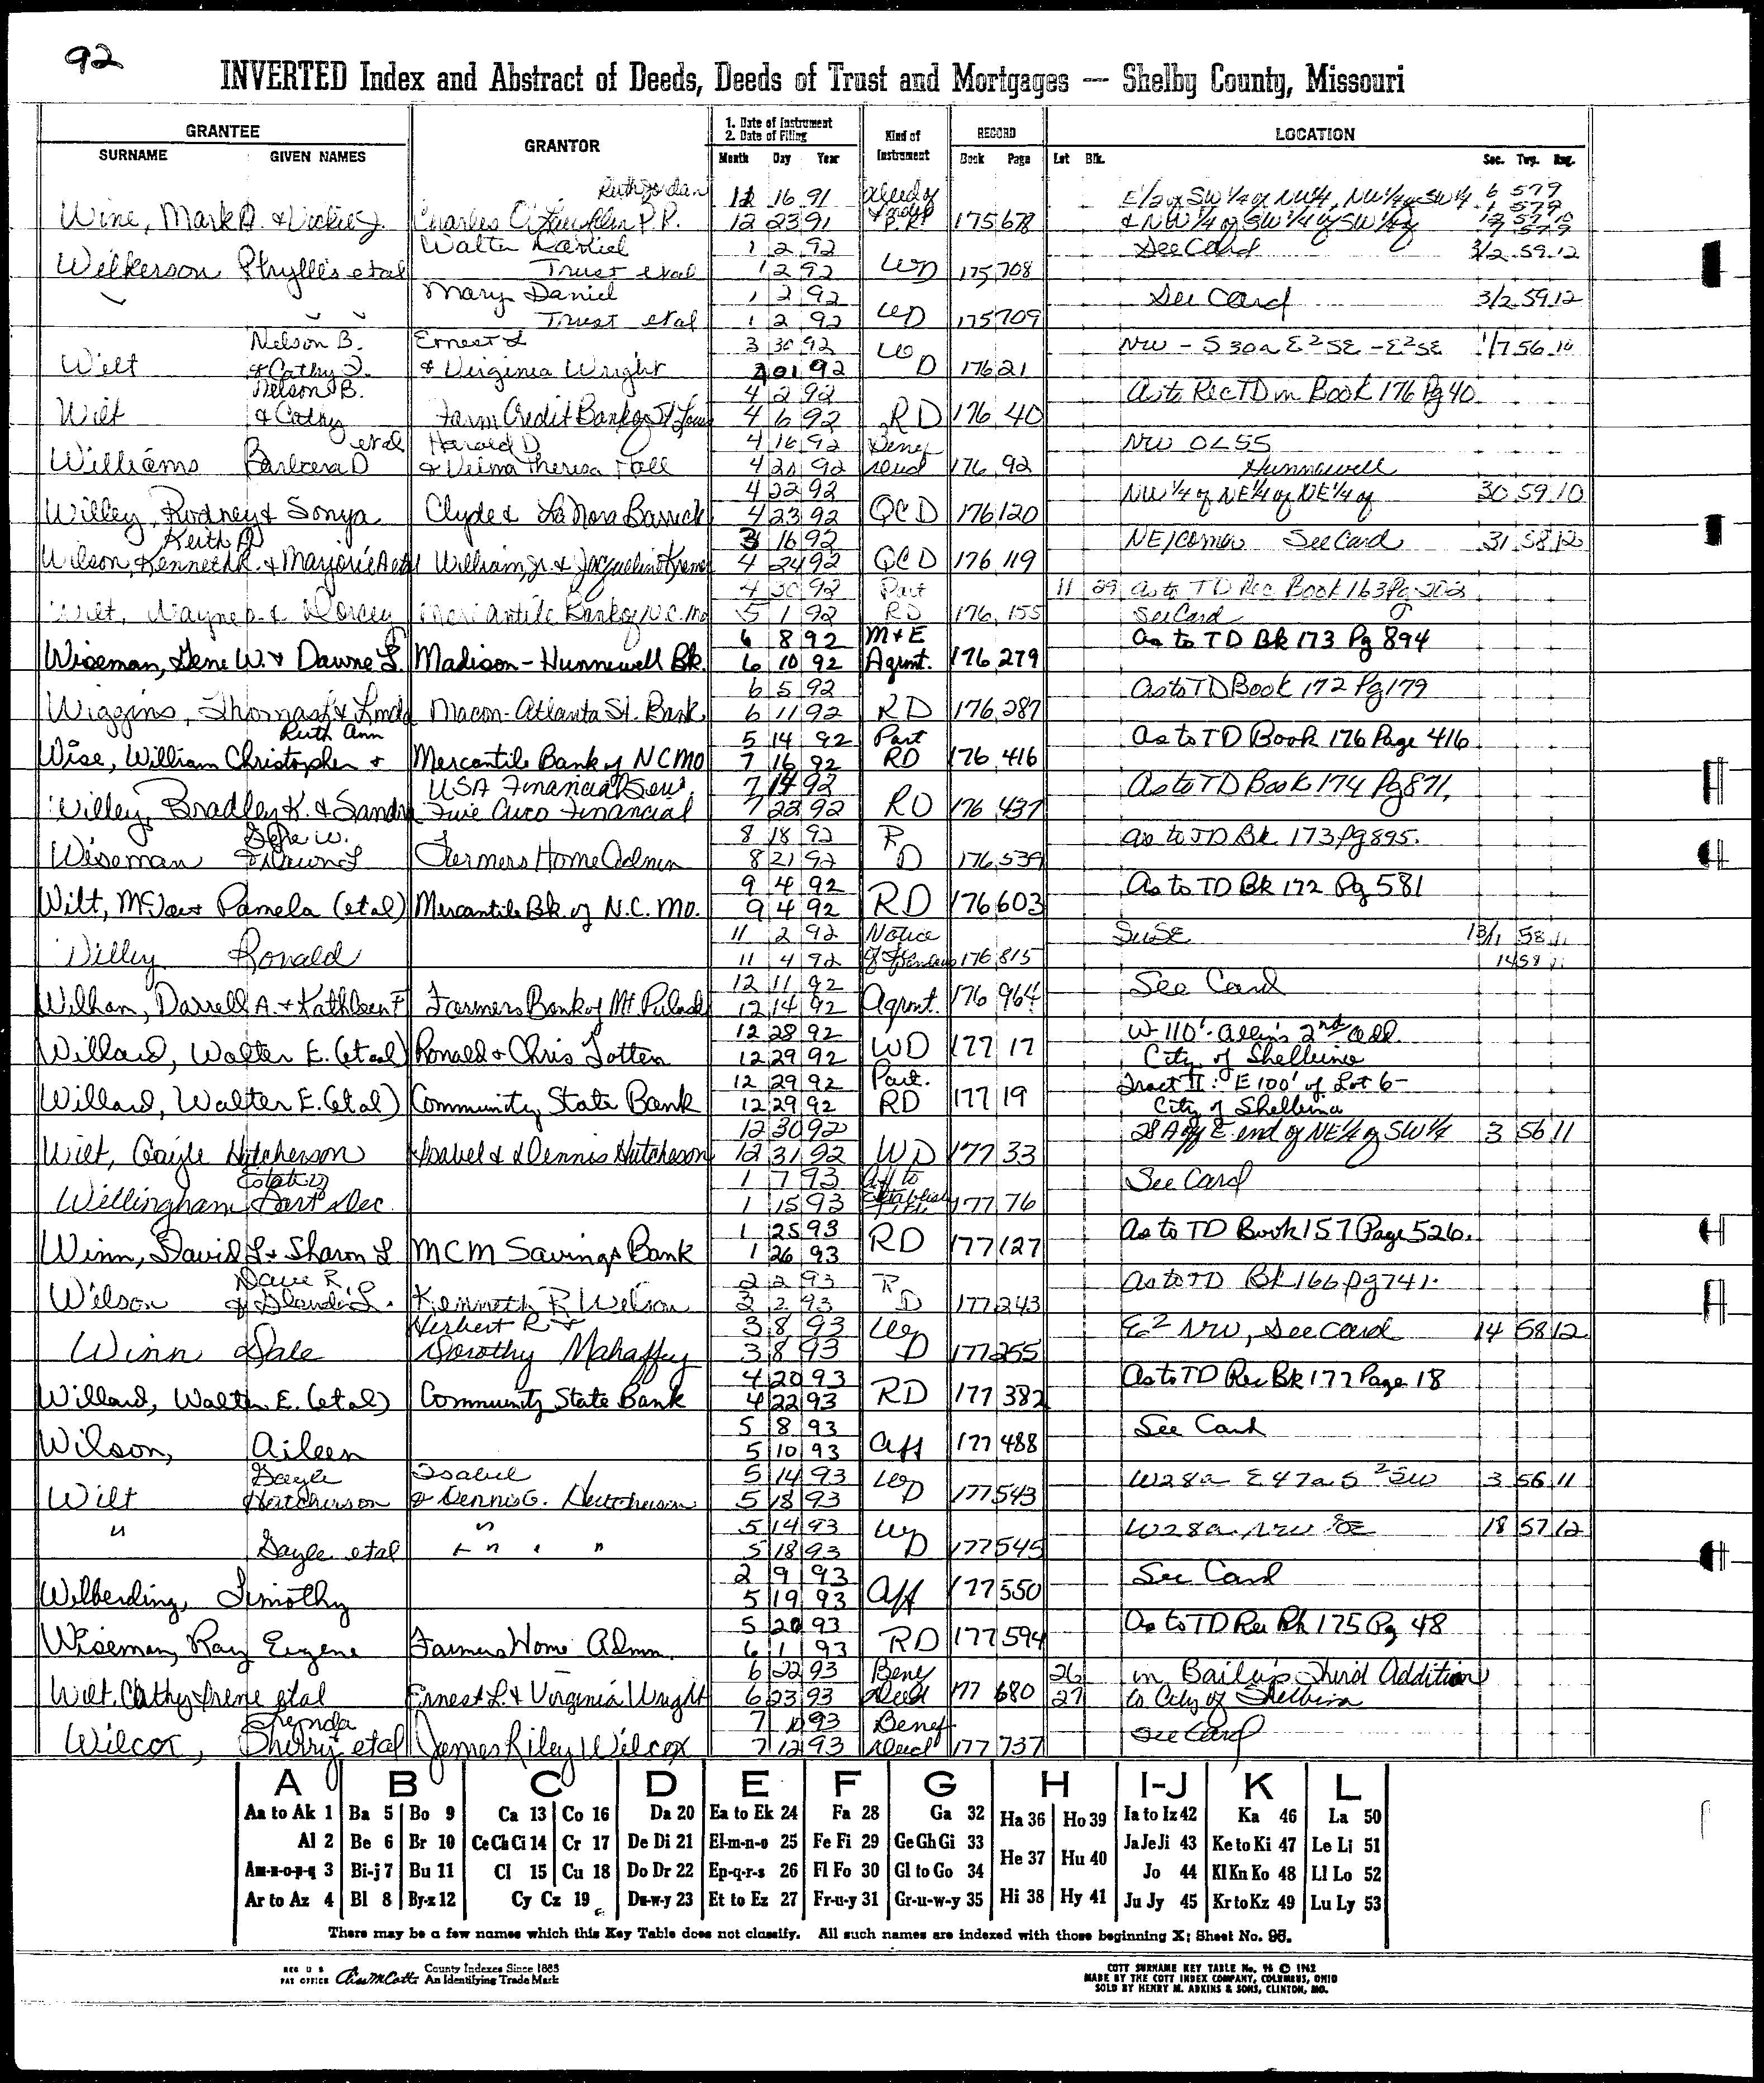 92
INVERTED Index and Abstract of Deeds, Deeds of Trust and Mortgages — Shelby County, Missouri
GRANTEE GRANTOR 1. Date of Instrument 2. Date of Filing Kind of Instrument RECORD LOCATION
SURNAME GIVEN NAMES Month Day Year Book Page Lot Blk. Sec. Twp. Rng.
Ruth Jordan 12 16 91 Deed of E 1/2 of SW 1/4 of NW 1/4, NW 1/4 of SW 1/4 6 57 9
Wine, Mark A. & Vickie J. Charles C. P.R. 12 23 91 P.R. 175 678 & NW 1/4 of SW 1/4 of SW 1/4 of
Walter Daniel 1 2 92 See Card 3/2 59 12
Wilkerson Phyllis etal Trust etal 1 2 92 WD 175 708
Mary Daniel 1 2 92 See Card 3/2 59 12
" " " Trust etal 1 2 92 WD 175 709
Nelson B. Ernest L 3 30 92 NW - S 30a E² SE - E² SE 1/7 56 10
Wilt & Cathy I. & Virginia Wright 4 01 92 WD 176 21
Nelson B. 4 2 92 As to Rec TD in Book 176 Pg 40
Wilt & Cathy Farm Credit Bank of St Louis 4 6 92 RD 176 40
etal Harold D 4 16 92 Benef NW OL 55
Williams Barbara D & Velma Theresa Hall 4 20 92 Deed 176 92 Hunnewell
4 22 92 NW 1/4 of NE 1/4 of NE 1/4 of 30 59 10
Willey, Rodney & Sonya Clyde & LaNora Barrick 4 23 92 QCD 176 120
Keith D 3 16 92 NE/corner See Card 31 58 12
Wilson, Kenneth R. & Marjorie A etal William, Jr. & Jacqueline 4 24 92 QCD 176 119
4 30 92 Part 11 29 as to TD Rec Book 163 Pg 202
Wilt, Wayne D. & Dorcey Mercantile Bank of N.C. Mo 5 1 92 RD 176 155 See Card
6 8 92 M & E As to TD Bk 173 Pg 894
Wiseman, Gene W. & Dawne L. Madison-Hunnewell Bk. 6 10 92 Agrmt. 176 279
6 5 92 As to TD Book 172 Pg 179
Wiggins, Thomas J & Linda Macon-Atlanta St. Bank 6 11 92 RD 176 287
Ruth Ann 5 14 92 Part As to TD Book 176 Page 416
Wise, William Christopher & Mercantile Bank of NC MO 7 16 92 RD 176 416
USA Financial Serv. 7 14 92 As to TD Book 174 Pg 871,
Willey, Bradley K. & Sandra Avco Financial 7 22 92 RD 176 437
Gene W. 8 18 92 R as to TD Bk 173 Pg 895.
Wiseman & Dawn L Farmers Home Admin 8 21 92 D 176 539
9 4 92 As to TD Bk 172 Pg 581
Wilt, McJoe & Pamela (etal) Mercantile Bk of N.C. Mo. 9 4 92 RD 176 603
11 2 92 Notice SWSE 13/1 58 11
Willey Ronald 11 4 92 176 815 14 58 11
12 11 92 See Card
Wilham, Darrell A. & Kathleen F Farmers Bank of Mt Pulaski 12 14 92 Agrmt. 176 964
12 28 92 W-110'- Allen's 2nd Add.
Willard, Walter E. (etal) Ronald & Chris Totten 12 29 92 WD 177 17 City of Shelbina
12 29 92 Part. Tract II: E 100' of Lot 6-
Willard, Walter E. (etal) Community State Bank 12 29 92 RD 177 19 City of Shelbina
12 30 92 28 A off E. end of NE 1/4 of SW 1/4 3 56 11
Wilt, Gayle Hutcherson Isabel & Dennis Hutcheson 12 31 92 WD 177 33
Estate of 1 7 93 Aff to See Card
Willingham Dart Dec. 1 15 93 Establish Title 177 76
1 25 93 As to TD Book 157 Page 526.
Winn, David L. & Sharon L MCM Savings Bank 1 26 93 RD 177 127
Dave R. 2 2 93 R As to TD Bk 166 Pg 741.
Wilson & L. Kenneth R Wilson 3 2 93 D 177 243
Herbert R & 3 8 93 WD E² NW, See Card 14 58 12
Winn Dale Dorothy Mahaffey 3 8 93 177 255
4 20 93 As to TD Rec Bk 177 Page 18
Willard, Walter E. (etal) Community State Bank 4 22 93 RD 177 382
5 8 93 See Card
Wilson, Aileen 5 10 93 Aff 177 488
Gayle Isabel 5 14 93 WD W28a E47a S²SW 3 56 11
Wilt Hutcherson & Dennis G. Hutcherson 5 18 93 177 543
" " 5 14 93 WD W28a NW SE 18 57 12
Gayle etal " " " 5 18 93 177 545
2 9 93 See Card
Wilberding, Timothy 5 19 93 Aff 177 550
5 20 93 As to TD Rec Bk 175 Pg 48
Wiseman, Ray Eugene Farmers Home Admn. 6 1 93 RD 177 594
6 22 93 Benef 26 in Bailey's Third Addition
Wilt, Cathy Irene etal Ernest L. & Virginia Wright 6 23 93 Deed 177 680 27 to City of Shelbina
7 10 93 Benef See Card
Wilcox, Sherry etal James Riley Wilcox 7 12 93 Deed 177 737
A B C D E F G H I-J K L
Aa to Ak 1 Ba 5 Bo 9 Ca 13 Co 16 Da 20 Ea to Ek 24 Fa 28 Ga 32 Ha 36 Ho 39 Ia to Iz 42 Ka 46 La 50
Al 2 Be 6 Br 10 Ce Ch Ci 14 Cr 17 De Di 21 El-m-n-o 25 Fe Fi 29 Ge Gh Gi 33 He 37 Hu 40 Ja Je Ji 43 Ke to Ki 47 Le Li 51
Am-n-o-p-q 3 Bi-j 7 Bu 11 Cl 15 Cu 18 Do Dr 22 Ep-q-r-s 26 Fl Fo 30 Gl to Go 34 Jo 44 Kl Kn Ko 48 Ll Lo 52
Ar to Az 4 Bl 8 By-z 12 Cy Cz 19 Du-w-y 23 Et to Ez 27 Fr-u-y 31 Gr-u-w-y 35 Hi 38 Hy 41 Ju Jy 45 Kr to Kz 49 Lu Ly 53
There may be a few names which this Key Table does not classify. All such names are indexed with those beginning X; Sheet No. 96.
REG U S PAT OFFICE County Indexes Since 1883 An Identifying Trade Mark
COTT SURNAME KEY TABLE No. 96 © 1962
MADE BY THE COTT INDEX COMPANY, COLUMBUS, OHIO
SOLD BY HENRY M. ADKINS & SONS, CLINTON, MO.